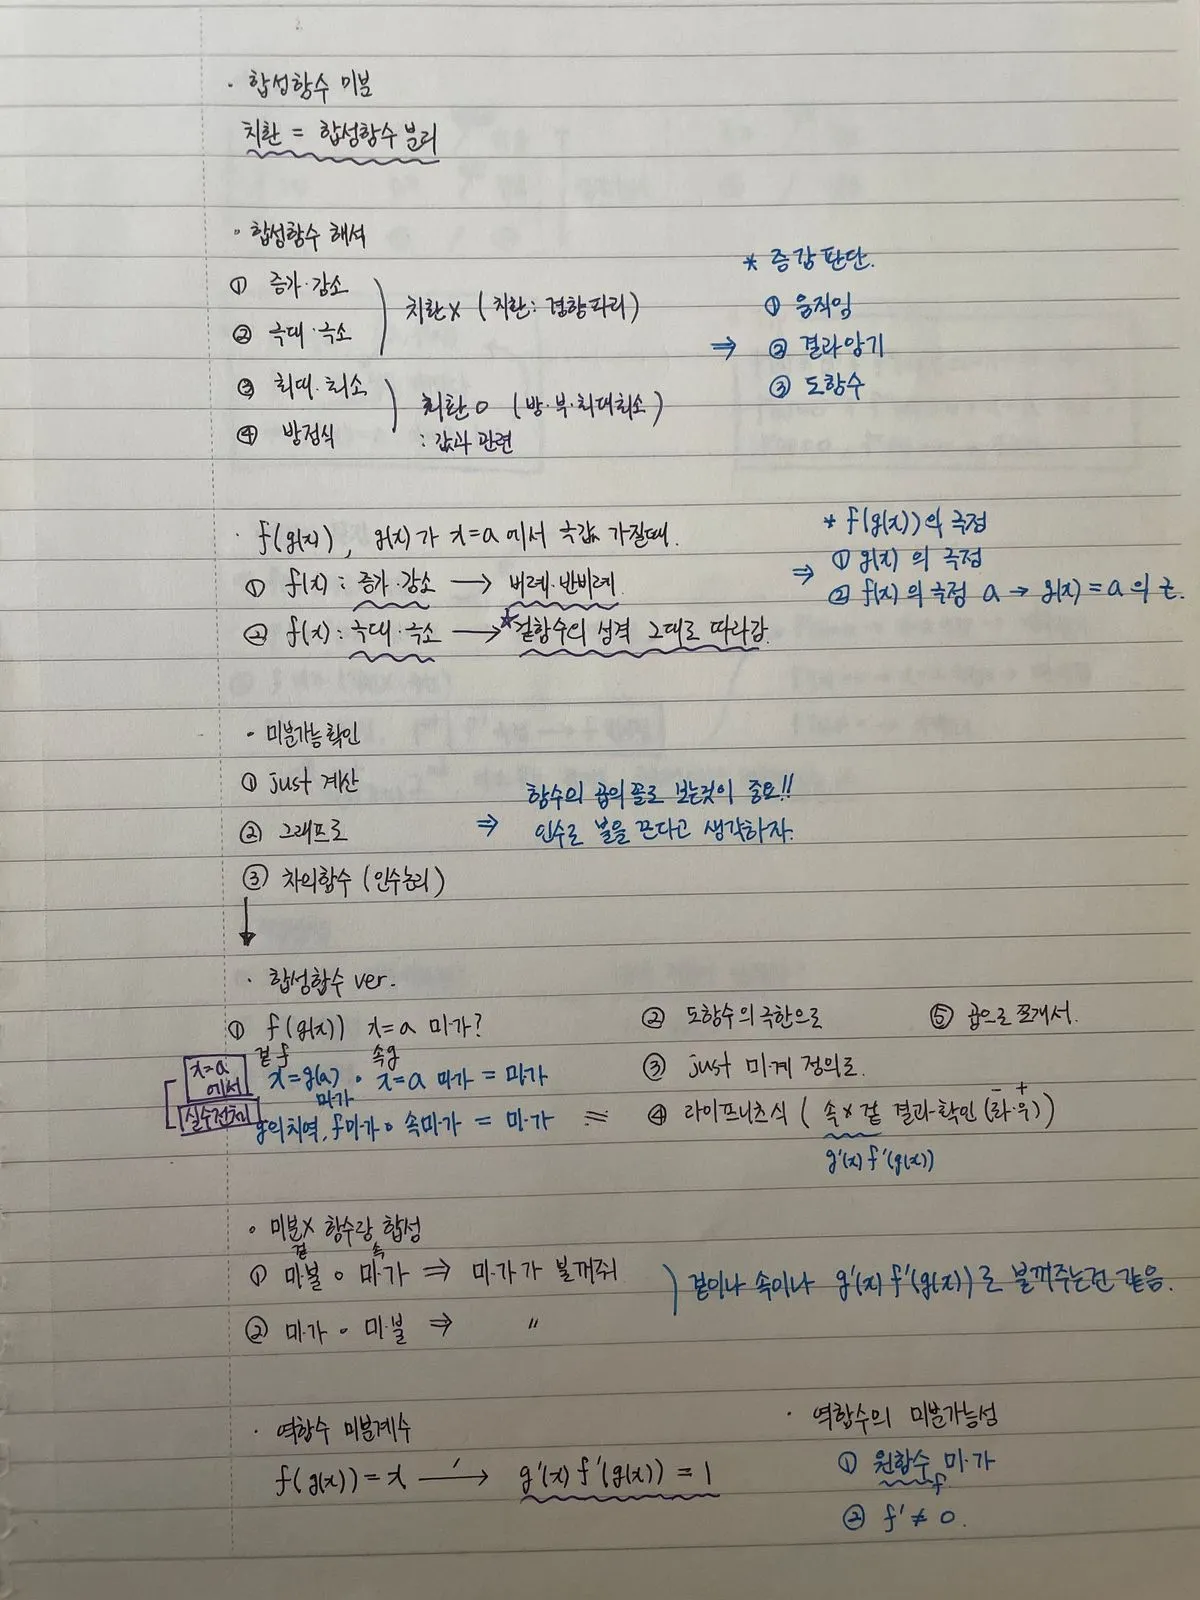 · 합성함수 미분
치환 = 합성함수 분리
· 합성함수 해석
① 증가·감소
② 극대·극소
치환X (치환: 경향파괴)
③ 최대·최소
④ 방정식
치환O (방·부·최대최소)
: 값과 관련
* 증감 판단.
① 움직임
⇒ ② 결과암기
③ 도함수
· f(g(x)), g(x)가 x=a 에서 극값 가질때.
① f(x) : 증가·감소 → 비례·반비례
② f(x) : 극대·극소 → ☆겉함수의 성격 그대로 따라감.
* f(g(x))의 극점
⇒ ① g(x)의 극점
② f(x)의 극점 a → g(x)=a의 근.
· 미분가능확인
① just 계산
② 그래프로
③ 차의함수 (인수논리)
⇒ 함수의 곱의 꼴로 보는것이 중요!!
인수로 불을 끈다고 생각하자.
↓
· 합성함수 ver.
① f(g(x)) x=a 미·가?
겉f 속g
x=a에서
x=g(a) ∘ x=a 미가 = 미가
미가
실수전체
g의치역, f미·가 ∘ 속미·가 = 미·가
② 도함수의 극한으로
③ just 미·계 정의로.
④ 라이프니츠식 ( 속x겉 결과확인 (좌·우) )
- +
g'(x) f'(g(x))
⑤ 곱으로 쪼개서.
· 미분X 함수랑 합성
겉 속
① 미·불 ∘ 미·가 ⇒ 미·가가 불꺼줘
② 미·가 ∘ 미·불 ⇒ 〃
) 겉이나 속이나 g'(x) f'(g(x))로 불꺼주는건 같음.
· 역함수 미분계수
f(g(x)) = x →' g'(x) f'(g(x)) = 1
· 역함수의 미분가능성
① 원함수 미·가
f
② f' ≠ 0.